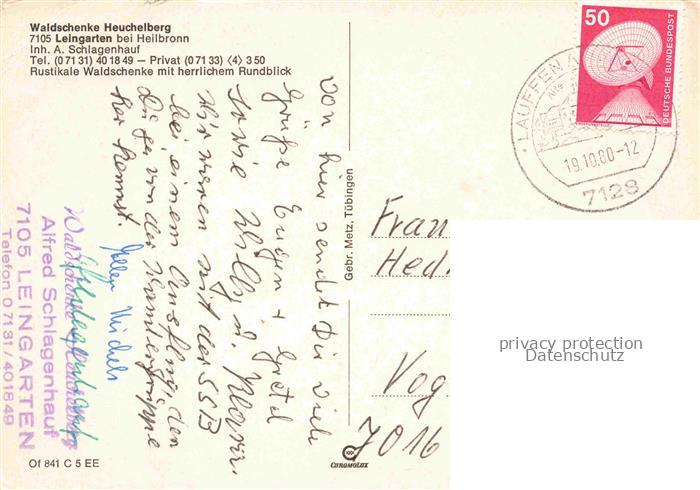 Waldschenke Heuchelberg
7105 Leingarten bei Heilbronn
Inh. A. Schlagenhauf
Tel. (07131) 401849 – Privat (07133) ⟨4⟩ 350
Rustikale Waldschenke mit herrlichem Rundblick
Von hier sendet Dir viele
Grüße Eugen + Gretel
sowie Willy u.
Wir waren mit der SSB
bei einem Ausflug, den
Du ja von der
her kennst.
Waldschenke Heuchelberg
Alfred Schlagenhauf
7105 LEINGARTEN
Telefon 07131/401849
Of 841 C 5 EE
Gebr. Metz, Tübingen
CHROMOLUX
50
DEUTSCHE BUNDESPOST
LAUFFEN
19.10.80-12
7128
Frau
Hed
Vog
7016
privacy protection
Datenschutz